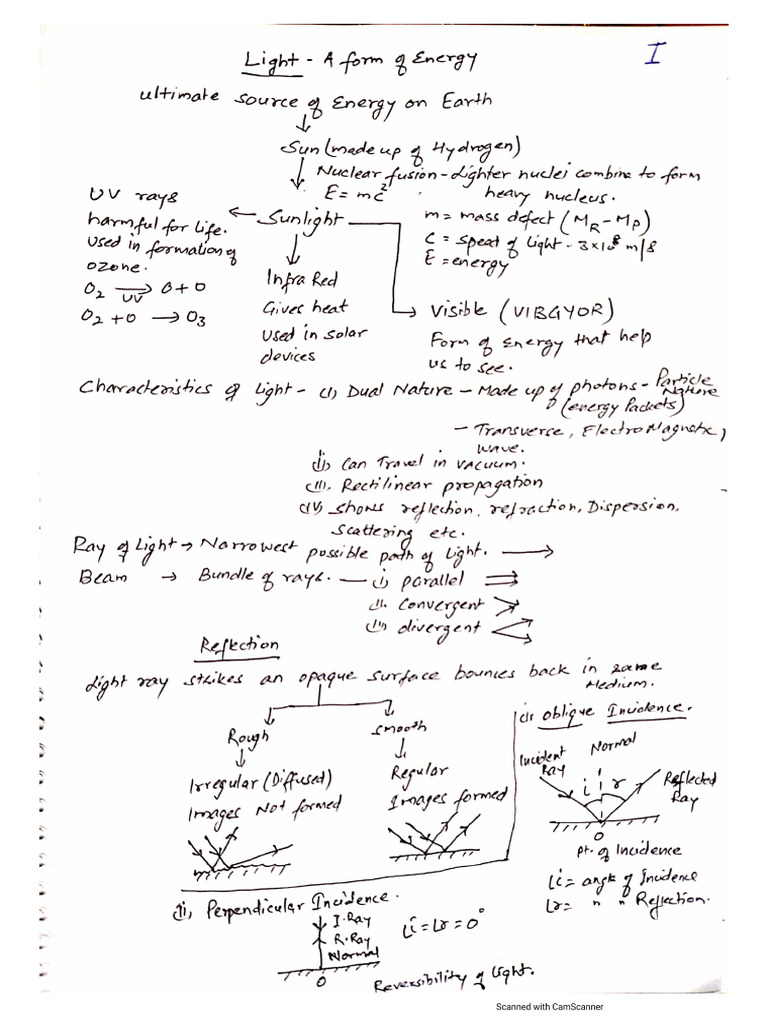 Light - A form of Energy
I
ultimate source of Energy on Earth
Sun (made up of Hydrogen)
Nuclear fusion - Lighter nuclei combine to form
heavy nucleus.
E = mc²
m = mass defect (M_R - M_P)
C = speed of light - 3×10⁸ m/s
E = energy
UV rays
harmful for life.
used in formation of
ozone.
O₂ → O + O
UV
O₂ + O → O₃
Sunlight
Infra Red
Gives heat
Used in solar
devices
Visible (VIBGYOR)
Form of Energy that help
us to see.
Characteristics of Light - (i) Dual Nature - Made up of photons - Particle Nature
(energy Packets)
- Transverse, ElectroMagnetic,
wave.
(ii) Can Travel in vacuum.
(iii). Rectilinear propagation
(iv) shows reflection, refraction, Dispersion,
Scattering etc.
Ray of Light → Narrowest possible path of light. →
Beam → Bundle of rays. — (i) parallel
(ii). Convergent
(iii) divergent
Reflection
Light ray strikes an opaque surface bounces back in same
Medium.
Rough
Irregular (Diffused)
Images Not formed
smooth
Regular
Images formed
(i) oblique Incidence.
Incident
Ray
Normal
i
r
Reflected
Ray
O
pt. of Incidence
∠i = angle of Incidence
∠r = " " Reflection.
(ii) Perpendicular Incidence.
I.Ray
R.Ray
Normal
O
∠i = ∠r = 0°
Reversibility of Light.
Scanned with CamScanner